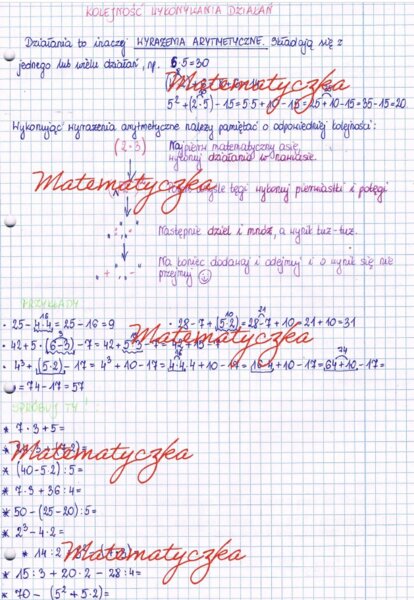 KOLEJNOŚĆ WYKONYWANIA DZIAŁAŃ
Działania to inaczej WYRAŻENIA ARYTMETYCZNE. Składają się z
jednego lub wielu działań, np. 6·5=30
Matematyczka
5² + (2·5) - 15 = 5·5 + 10 - 15 = 25 + 10 - 15 = 35 - 15 = 20
Wykonując wyrażenia arytmetyczne należy pamiętać o odpowiedniej kolejności:
(2·3) Najpierw matematyczny asie,
wykonuj działania w nawiasie.
Matematyczka tęgi wykonuj pierwiastki i potęgi
Następnie dziel i mnóż, a wynik tuż-tuż.
+ - Na koniec dodawaj i odejmuj i o wynik się nie
przejmuj
PRZYKŁADY
· 25 - 4·4 = 25 - 16 = 9 · 28 - 7 + (5·2) = 28 - 7 + 10 = 21 + 10 = 31
Matematyczka
· 42 + 5 · (6-3) - 7 = 42 + 5·3 - 7
· 4³ + (5·2) - 17 = 4³ + 10 - 17 = 4·4·4 + 10 - 17 = 16·4 + 10 - 17 = 64 + 10 - 17 =
= 74 - 17 = 57
SPRÓBUJ TY!
* 7·3 + 5 =
Matematyczka
* (40 - 5·2) : 5 =
* 7·3 + 36 : 4 =
* 50 - (25 - 20) : 5 =
* 2³ - 4·2 =
* 14 : 2
Matematyczka
* 15 : 3 + 20·2 - 28 : 4 =
* 70 - (5² + 5·2) =